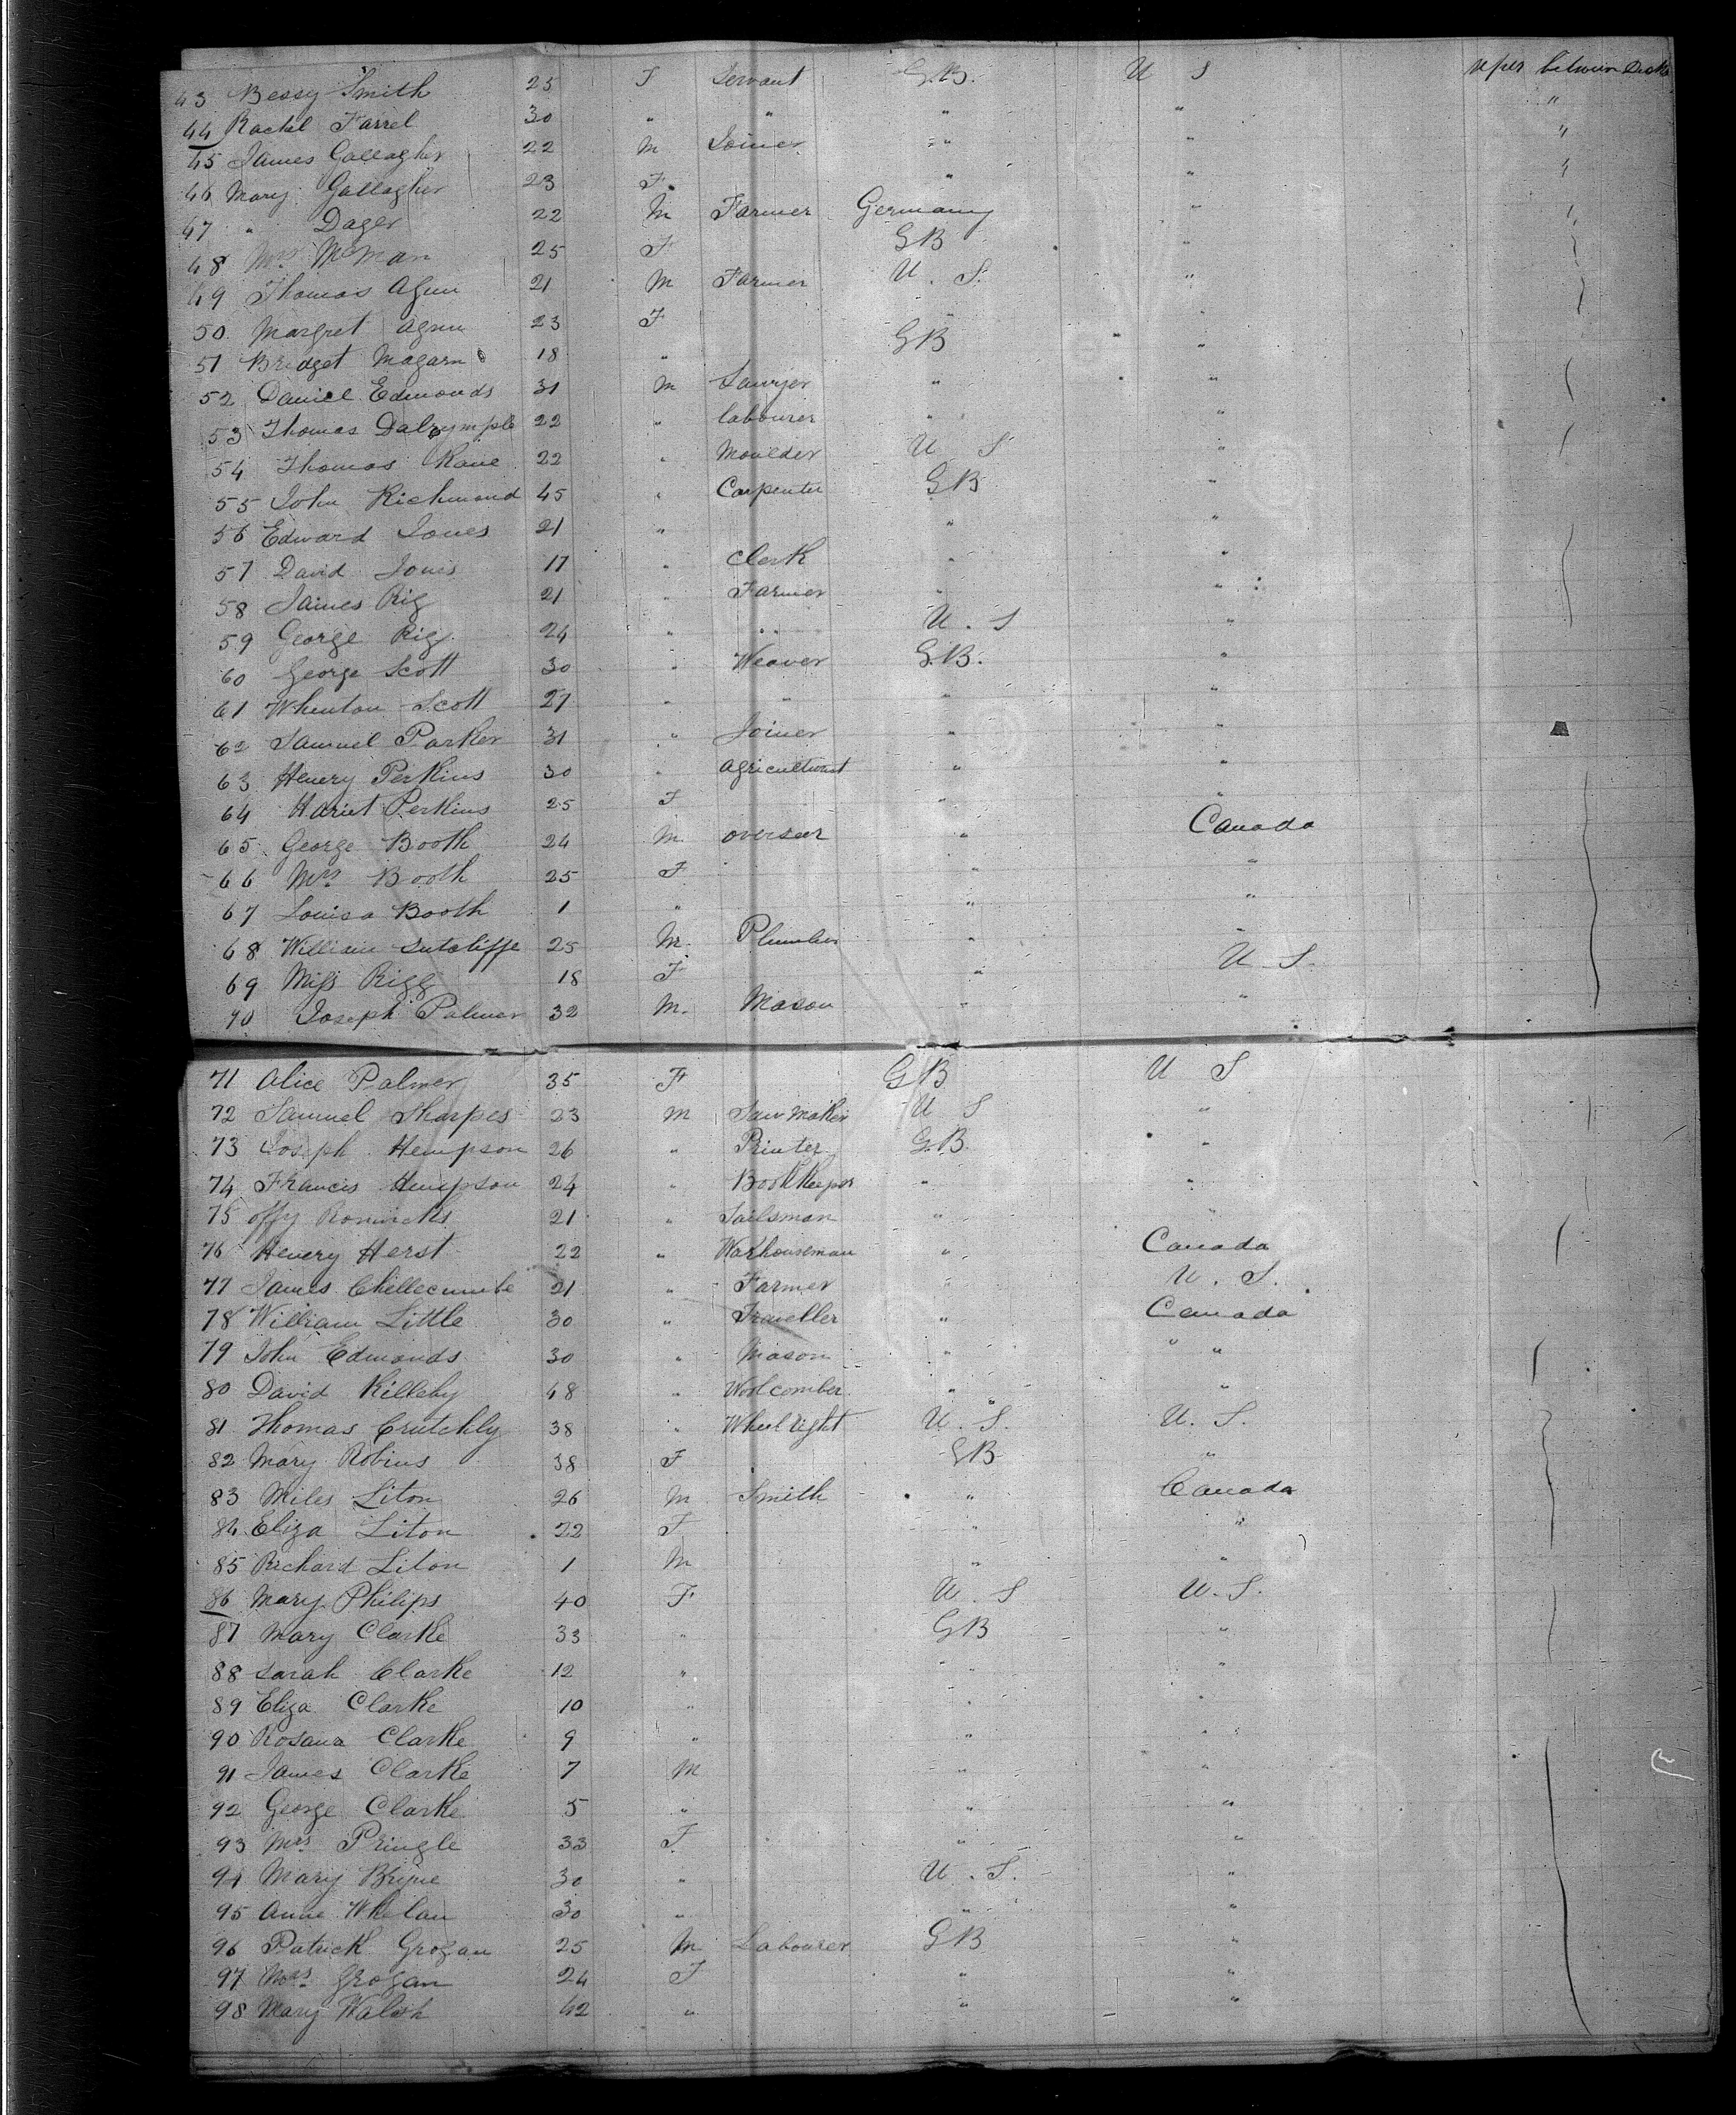 43 Bessy Smith 25 F Servant G.B. U S uper between Decks
44 Rachel Farrel 30 " " " " "
45 James Gallagher 22 M Joiner " " "
46 Mary Gallagher 23 F. " " "
47 " Dager 22 M Farmer Germany " "
48 Mrs McMan 25 F GB "
49 Thomas Agnu 21 M Farmer U. S. "
50 Margret Agnu 23 F " "
51 Bridget Magarn 18 " GB "
52 Daniel Edmonds 31 M Sawyer " "
53 Thomas Dalrymple 22 " labourer " "
54 Thomas Kane 22 " Moulder U S "
55 John Richmond 45 " Carpenter GB "
56 Edward Jones 21 " " "
57 David Jones 17 " Clerk " "
58 James Rig 21 " Farmer " "
59 George Rig 24 " " U. S "
60 George Scott 30 " Weaver G.B. "
61 Whenton Scott 27 " " " "
62 Samuel Parker 31 " Joiner " "
63 Henery Perkins 30 " Agriculturist " "
64 Hariet Perkins 25 F " "
65 George Booth 24 M overseer " Canada
66 Mrs Booth 25 F " "
67 Louisa Booth 1 " " "
68 William Sutcliffe 25 M. Plumber " "
69 Miss Rigg 18 F " U. S.
70 Joseph Palmer 32 M. Mason " "
71 Alice Palmer 35 F GB U S
72 Samuel Sharpes 23 M Saw Maker U S "
73 Joseph Hempson 26 " Printer G.B. "
74 Francis Hempson 24 " Bookkeeper " "
75 offy 21 " Sailsman " "
76 Henery Herst 22 " Warhouseman " Canada
77 James Chellecumbe 21 " Farmer " U. S.
78 William Little 30 " Traveller " Canada
79 John Edmonds 30 " Mason " " "
80 David Killeby 48 " Woolcomber " "
81 Thomas Crutchly 38 " Wheelright U. S. U. S.
82 Mary Robins 38 F GB "
83 Miles Liton 26 M Smith " Canada
84 Eliza Liton 22 F " "
85 Richard Liton 1 M " "
86 Mary Philips 40 F U. S U. S.
87 Mary Clarke 33 " GB "
88 Sarah Clarke 12 " " "
89 Eliza Clarke 10 " " "
90 Rosana Clarke 9 " " "
91 James Clarke 7 M " "
92 George Clarke 5 " " "
93 Mrs Pringle 33 F " "
94 Mary Bryne 30 " U. S. "
95 Anne Whelan 30 " " "
96 Patrick Grogan 25 M Labourer GB "
97 Mrs Grogan 24 F " "
98 Mary Walsh 42 " " "